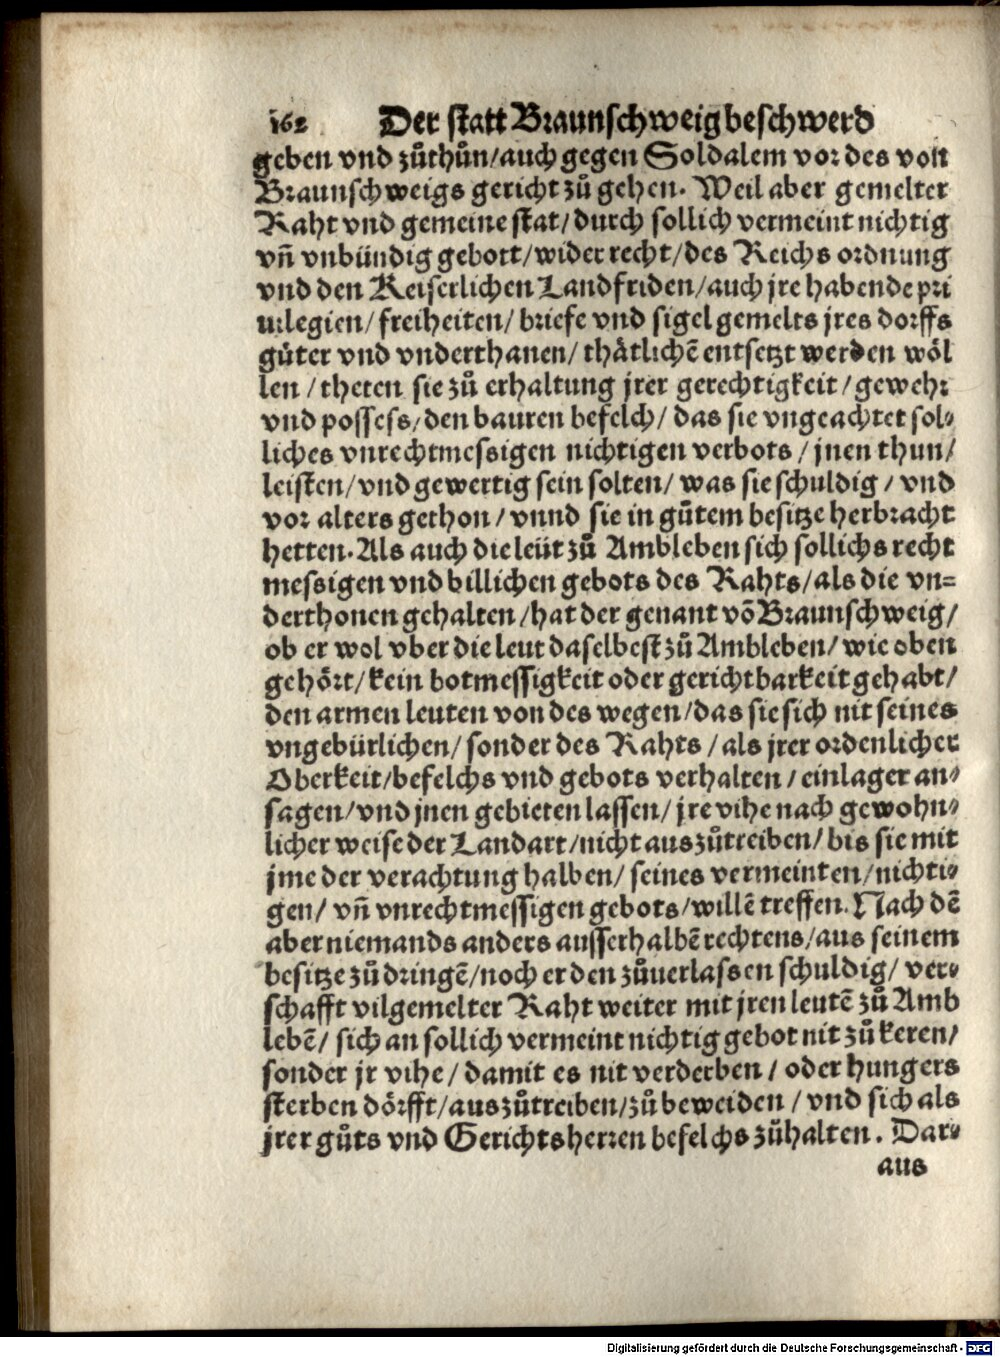 162 Der statt Braunschweig beschwerd
geben vnd zůthůn/auch gegen Soldalem vor des von
Braunschweigs gericht zů gehen. Weil aber gemelter
Raht vnd gemeine stat/durch sollich vermeint nichtig
vñ vnbündig gebott/wider recht/des Reichs ordnung
vnd den Keiserlichen Landfriden/auch jre habende pri
uilegien/freiheiten/briefe vnd sigel gemelts jres dorffs
gůter vnd vnderthanen/thätlichẽ entsetzt werden wöl
len/theten sie zů erhaltung jrer gerechtigkeit/gewehr
vnd possess/den bauren befelch/das sie vngeachtet sol⸗
liches vnrechtmessigen nichtigen verbots/jnen thun/
leisten/vnd gewertig sein solten/was sie schuldig/vnd
vor alters gethon/vnnd sie in gůtem besitze herbracht
hetten. Als auch die leüt zů Ambleben sich sollichs recht
messigen vnd billichen gebots des Rahts/als die vn⸗
derthonen gehalten/hat der genant võ Braunschweig/
ob er wol vber die leut daselbest zů Ambleben/wie oben
gehört/kein botmessigkeit oder gerichtbarkeit gehabt/
den armen leuten von des wegen/das sie sich nit seines
vngebürlichen/sonder des Rahts/als jrer ordenlicher
Oberkeit/befelchs vnd gebots verhalten/einlager an⸗
sagen/vnd jnen gebieten lassen/jre vihe nach gewohn⸗
licher weise der Landart/nicht auszůtreiben/bis sie mit
jme der verachtung halben/seines vermeinten/nichti⸗
gen/vñ vnrechtmessigen gebots/willẽ treffen. Nach dẽ
aber niemands anders ausserhalbẽ rechtens/aus seinem
besitze zů dringẽ/noch er den zůuerlassen schuldig/ver⸗
schafft vilgemelter Raht weiter mit jren leutẽ zů Amb
lebẽ/sich an sollich vermeint nichtig gebot nit zů keren/
sonder jr vihe/damit es nit verderben/oder hungers
sterben dörfft/auszůtreiben/zů beweiden/vnd sich als
jrer gůts vnd Gerichtsherren befelchs zůhalten. Dar⸗
aus
Digitalisierung gefördert durch die Deutsche Forschungsgemeinschaft - DFG